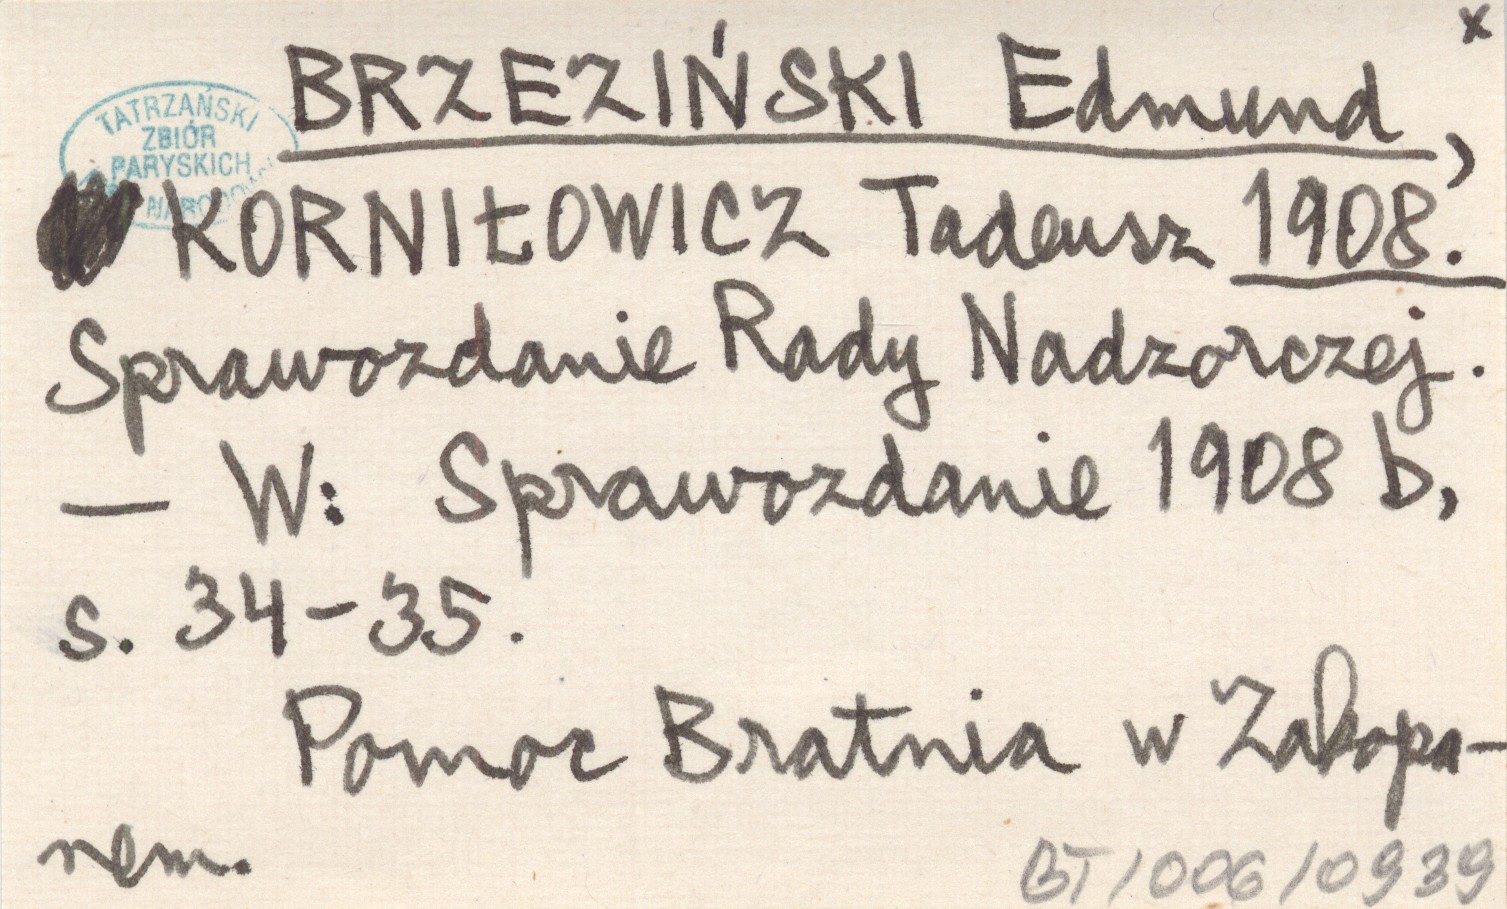 x
BRZEZIŃSKI Edmund,
TATRZAŃSKI
ZBIÓR
PARYSKICH
KORNIŁOWICZ Tadeusz 1908.
Sprawozdanie Rady Nadzorczej.
— W: Sprawozdanie 1908 b,
s. 34-35.
Pomoc Bratnia w Zakopa-
nem.
BT/006/0939